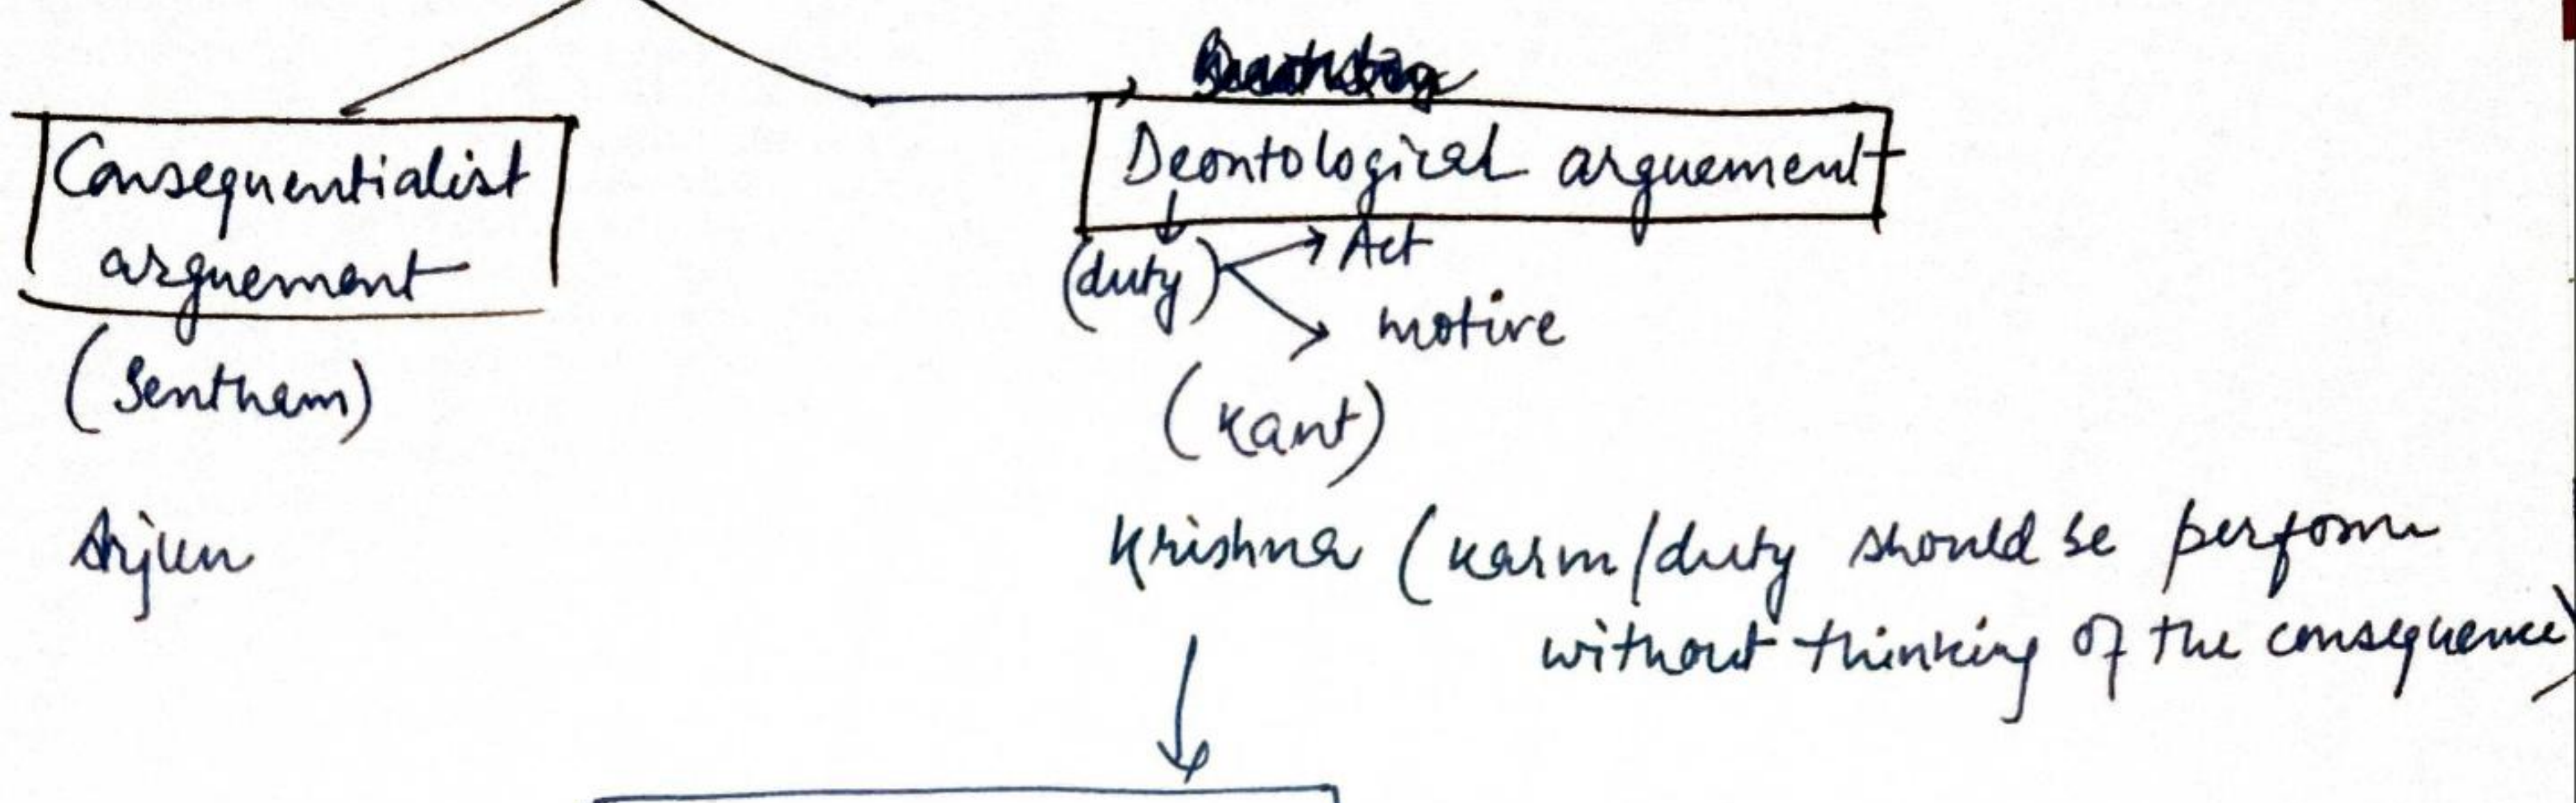 Consequentialist
arguement
(Bentham)
Arjun
Deontological arguement
(duty) → Act
→ motive
(Kant)
Krishna (karm/duty should be perform
without thinking of the consequence)